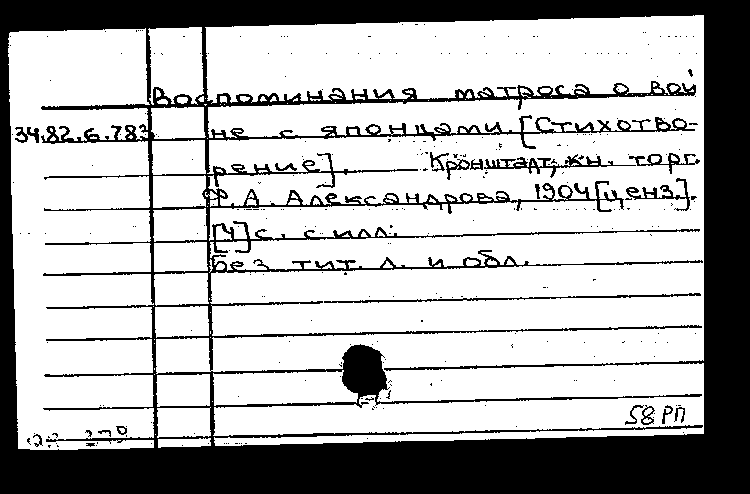 Воспоминания матроса о вой
34.82.6.783 не с японцами. [Стихотво-
рение]. Кронштадт, кн. торг.
Ф. А. Александрова, 1904 [ценз.].
[4] с. с илл.
Без тит. л. и обл.
58 РП